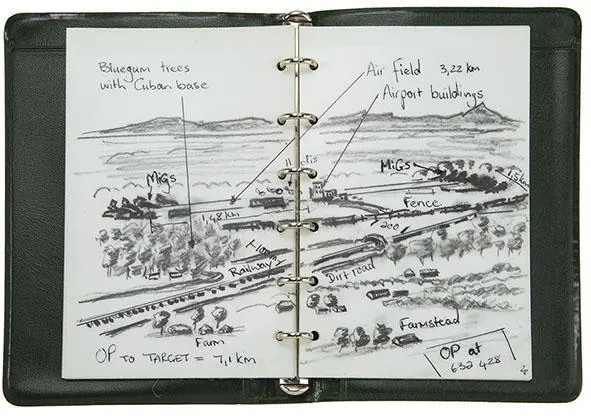 Bluegum trees
with Cuban base
Air field 3,22 km
Airport buildings
MiGs
MiGs
1,5km
Fence
1,48 km
200
Railway
Dirt road
Farm
Farmstead
OP TO TARGET = 7,1 km
OP at
632 428